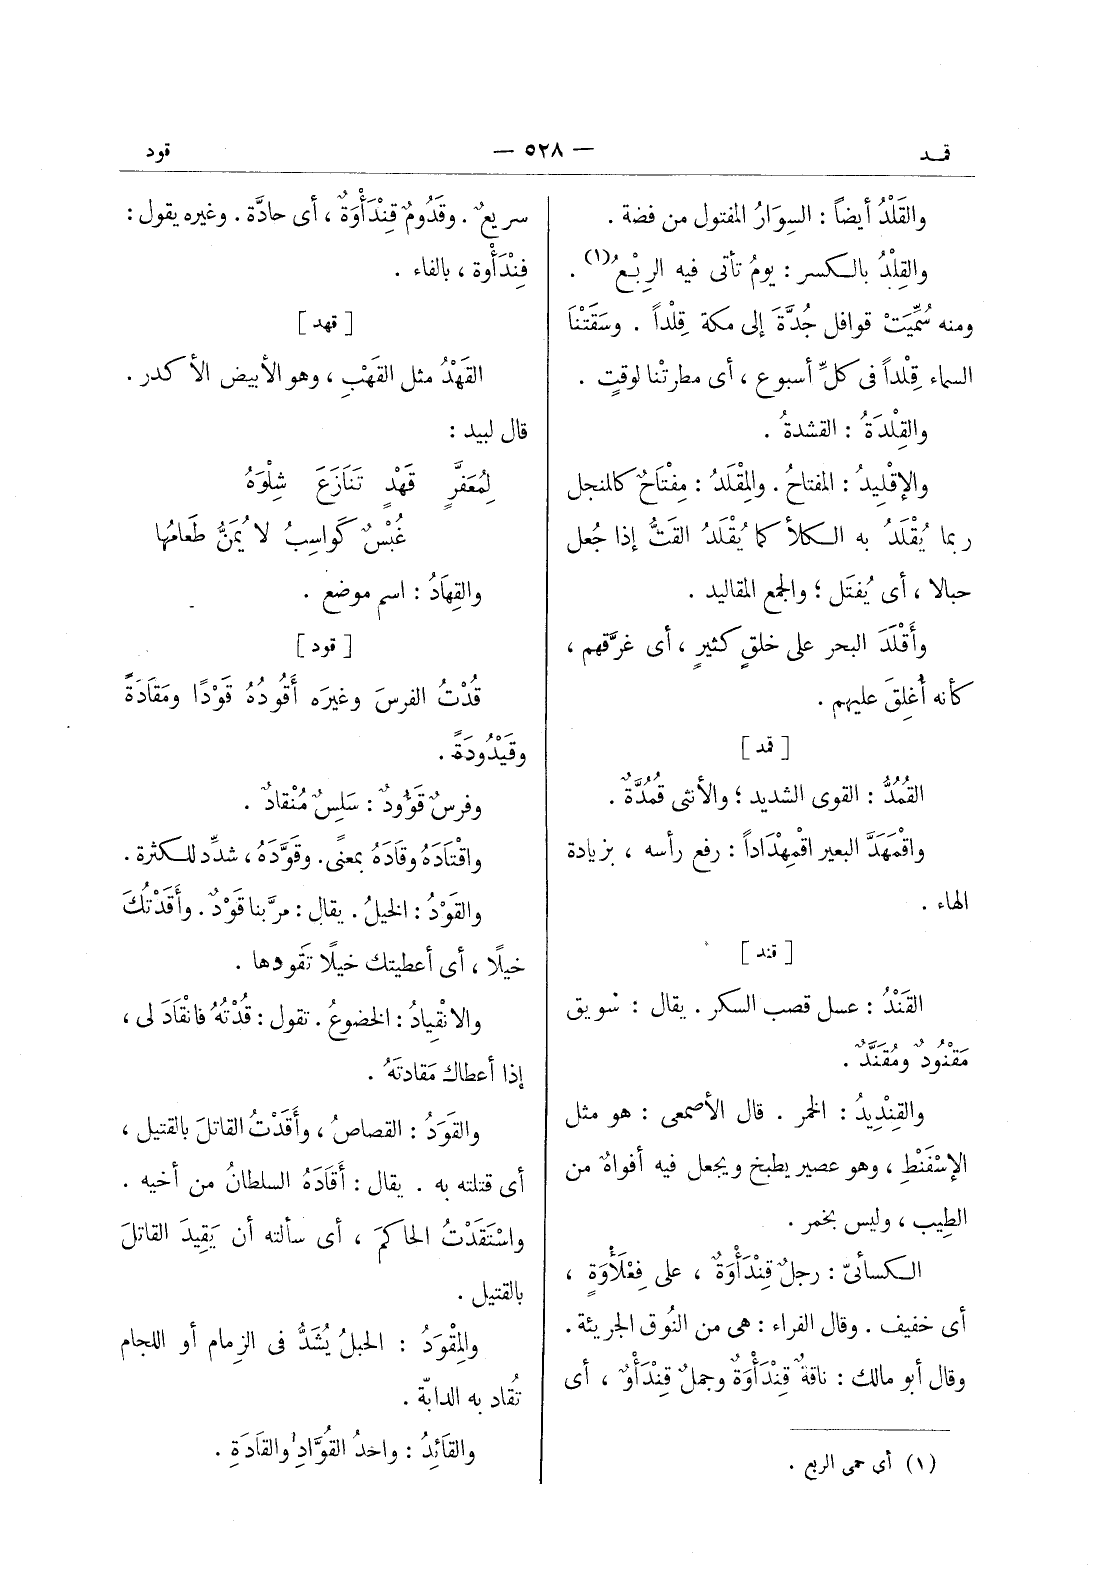 قمد — ٥٢٨ — قود
والقَلْدُ أيضاً : السِوَارُ المفتول من فضة .
والقِلْدُ بالكسر : يومُ تأتى فيه الرِبْعُ(١) .
ومنه سُمِّيَتْ قوافل جُدَّةَ إلى مكة قِلْداً . وسَقَتْنَا
السماء قِلْداً فى كلِّ أسبوع ، أى مطرتْنا لوقتٍ .
والقِلْدَةُ : القشدةُ .
والإقْلِيدُ : المفتاحُ . والمِقْلَدُ : مِفْتَاحٌ كالمنجل
ربما يُقْلَدُ به الكلأ كما يُقْلَدُ القتُّ إذا جُعل
حبالا ، أى يُفتَل ؛ والجمع المقاليد .
وأَقْلَدَ البحر على خلقٍ كثيرٍ ، أى غرَّقهم ،
كأنه أُغلِقَ عليهم .
[ قمد ]
القُمُدُّ : القوى الشديد ؛ والأنثى قُمُدَّةٌ .
واقْمَهَدَّ البعير اقْمِهْدَاداً : رفع رأسه ، بزيادة
الهاء .
[ قند ]
القَنْدُ : عسل قصب السكر . يقال : سَويق
مَقْنُودٌ ومُقَنَّدٌ .
والقِنْدِيدُ : الخمر . قال الأصمعى : هو مثل
الإسْفَنْطِ ، وهو عصير يطبخ ويجعل فيه أفواهٌ من
الطِيب ، وليس بخمر .
الكسائىّ : رجلٌ قِنْدَأْوَةٌ ، على فِعْلَأْوَةٍ ،
أى خفيف . وقال الفراء : هى من النُوق الجريئة .
وقال أبو مالك : ناقةٌ قِنْدَأْوَةٌ وجملٌ قِنْدَأْوٌ ، أى
(١) أي حمى الربع .
سريعٌ . وقَدُومٌ قِنْدَأْوَةٌ ، أى حادَّة . وغيره يقول :
فِنْدَأْوة ، بالفاء .
[ قهد ]
القَهْدُ مثل القَهْبِ ، وهو الأبيض الأكدر .
قال لبيد :
لِمُعَفَّرٍ قَهْدٍ تَنَازَعَ شِلْوَهُ
غُبْسٌ كَوَاسِبُ لا يُمَنُّ طَعَامُها
والقِهَادُ : اسم موضع .
[ قود ]
قُدْتُ الفرسَ وغيرَه أَقُودُهُ قَوْدًا ومَقَادَةً
وقَيْدُودَةً .
وفرسٌ قَوُودٌ : سَلِسٌ مُنْقادٌ .
واقْتَادَهُ وقَادَهُ بمعنًى . وقَوَّدَهُ ، شدِّد للكثرة .
والقَوْدُ : الخيلُ . يقال : مرَّ بنا قَوْدٌ . وأَقَدْتُكَ
خيلًا ، أى أعطيتك خيلًا تقُودها .
والانْقِيادُ : الخضوعُ . تقول : قُدْتُهُ فانْقَادَ لى ،
إذا أعطاك مَقادتَهُ .
والقَوَدُ : القصاصُ ، وأَقَدْتُ القاتلَ بالقتيل ،
أى قتلته به . يقال : أَقَادَهُ السلطانُ من أخيه .
واسْتَقَدْتُ الحاكمَ ، أى سألته أن يَقِيدَ القاتلَ
بالقتيل .
والمِقْوَدُ : الحبلُ يُشَدُّ فى الزِمام أو اللجام
تُقاد به الدابّة .
والقَائِدُ : واحدُ القُوَّادِ والقَادَةِ .